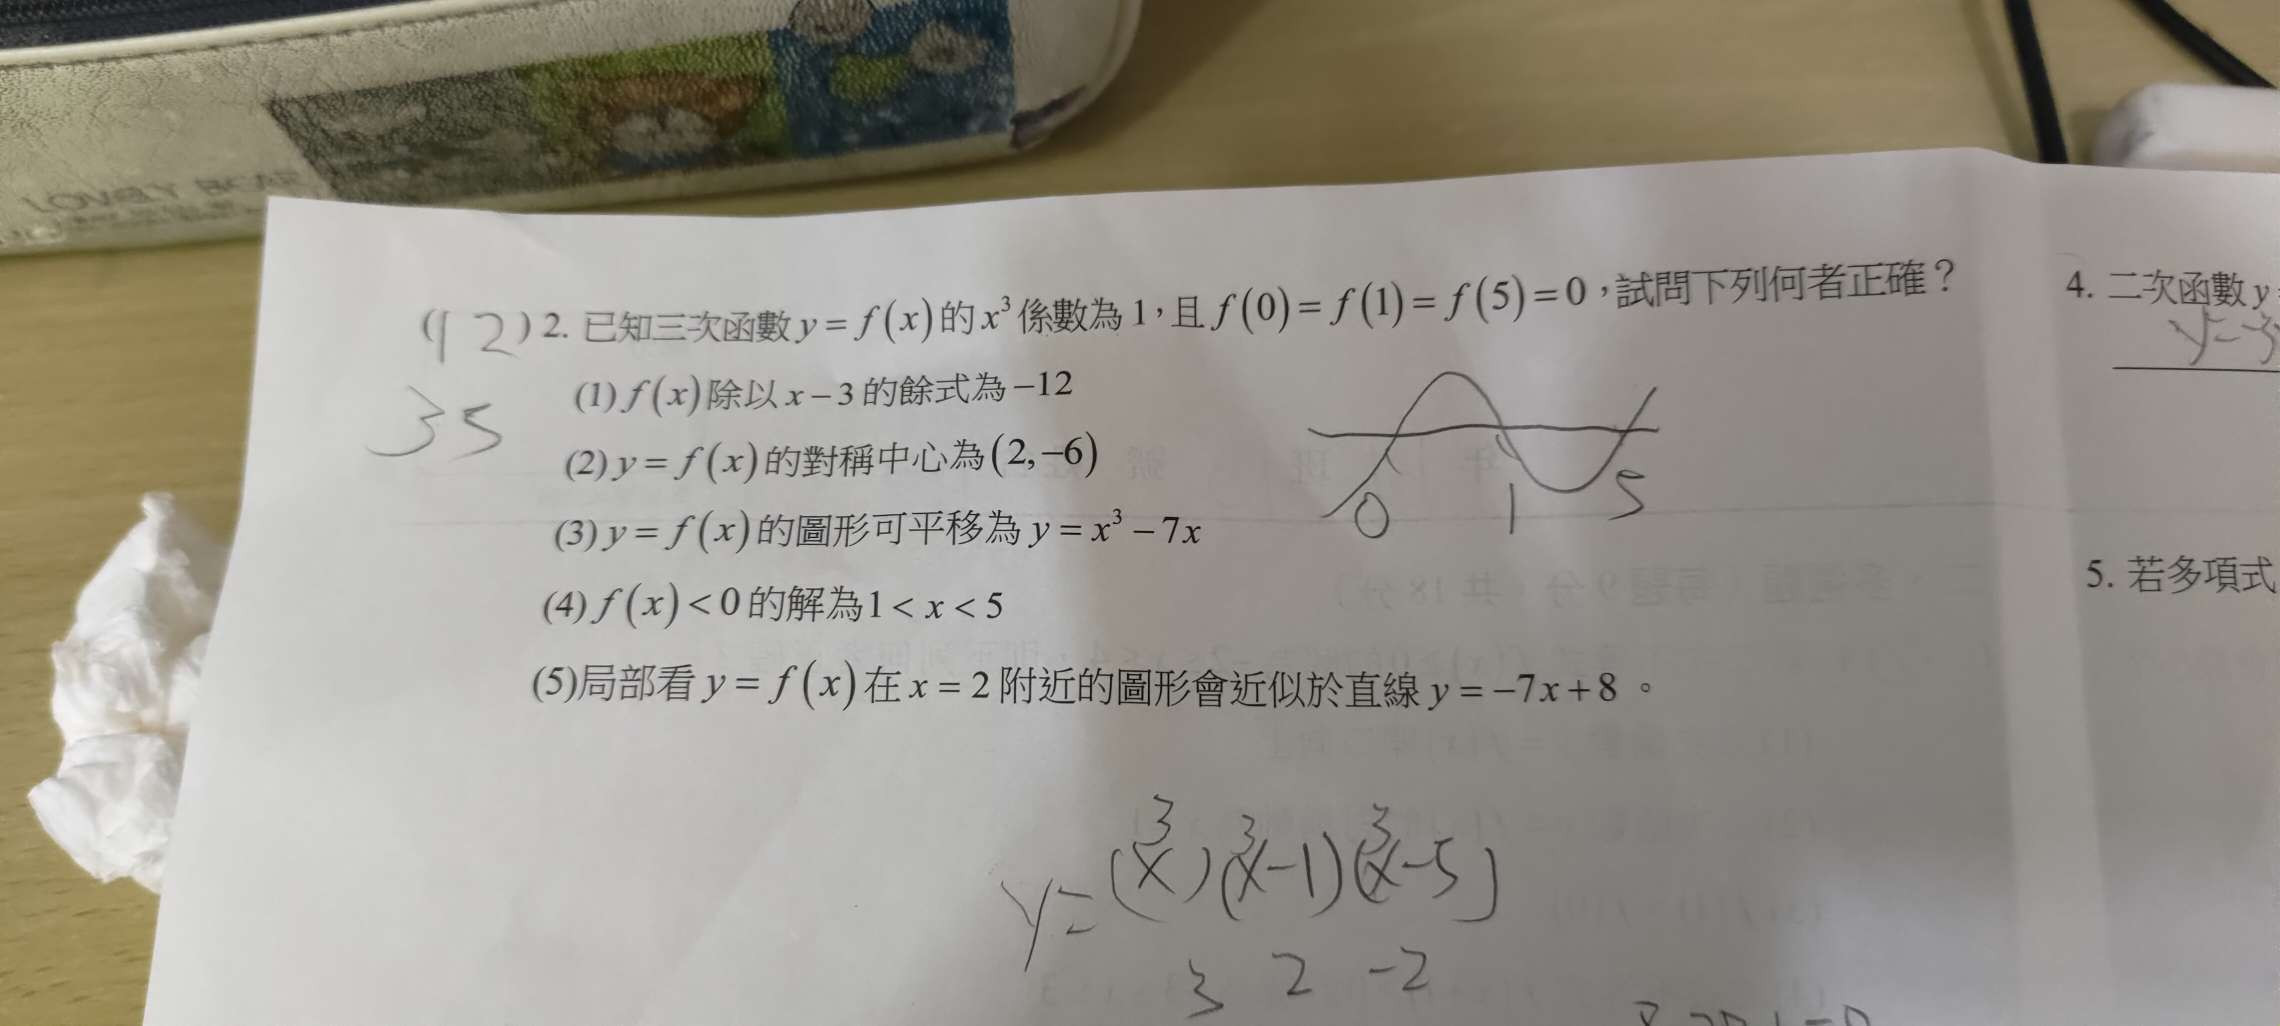 LOVELY BEAR
(12)2. 已知三次函數 y = f(x) 的 x³ 係數為 1，且 f(0) = f(1) = f(5) = 0，試問下列何者正確？
35
(1) f(x) 除以 x − 3 的餘式為 −12
(2) y = f(x) 的對稱中心為 (2, −6)
(3) y = f(x) 的圖形可平移為 y = x³ − 7x
(4) f(x) < 0 的解為 1 < x < 5
(5)局部看 y = f(x) 在 x = 2 附近的圖形會近似於直線 y = −7x + 8 。
0 1 5
3 3 3
y= (x)(x-1)(x-5)
3 2 -2
4. 二次函數 y
y=-3
5. 若多項式